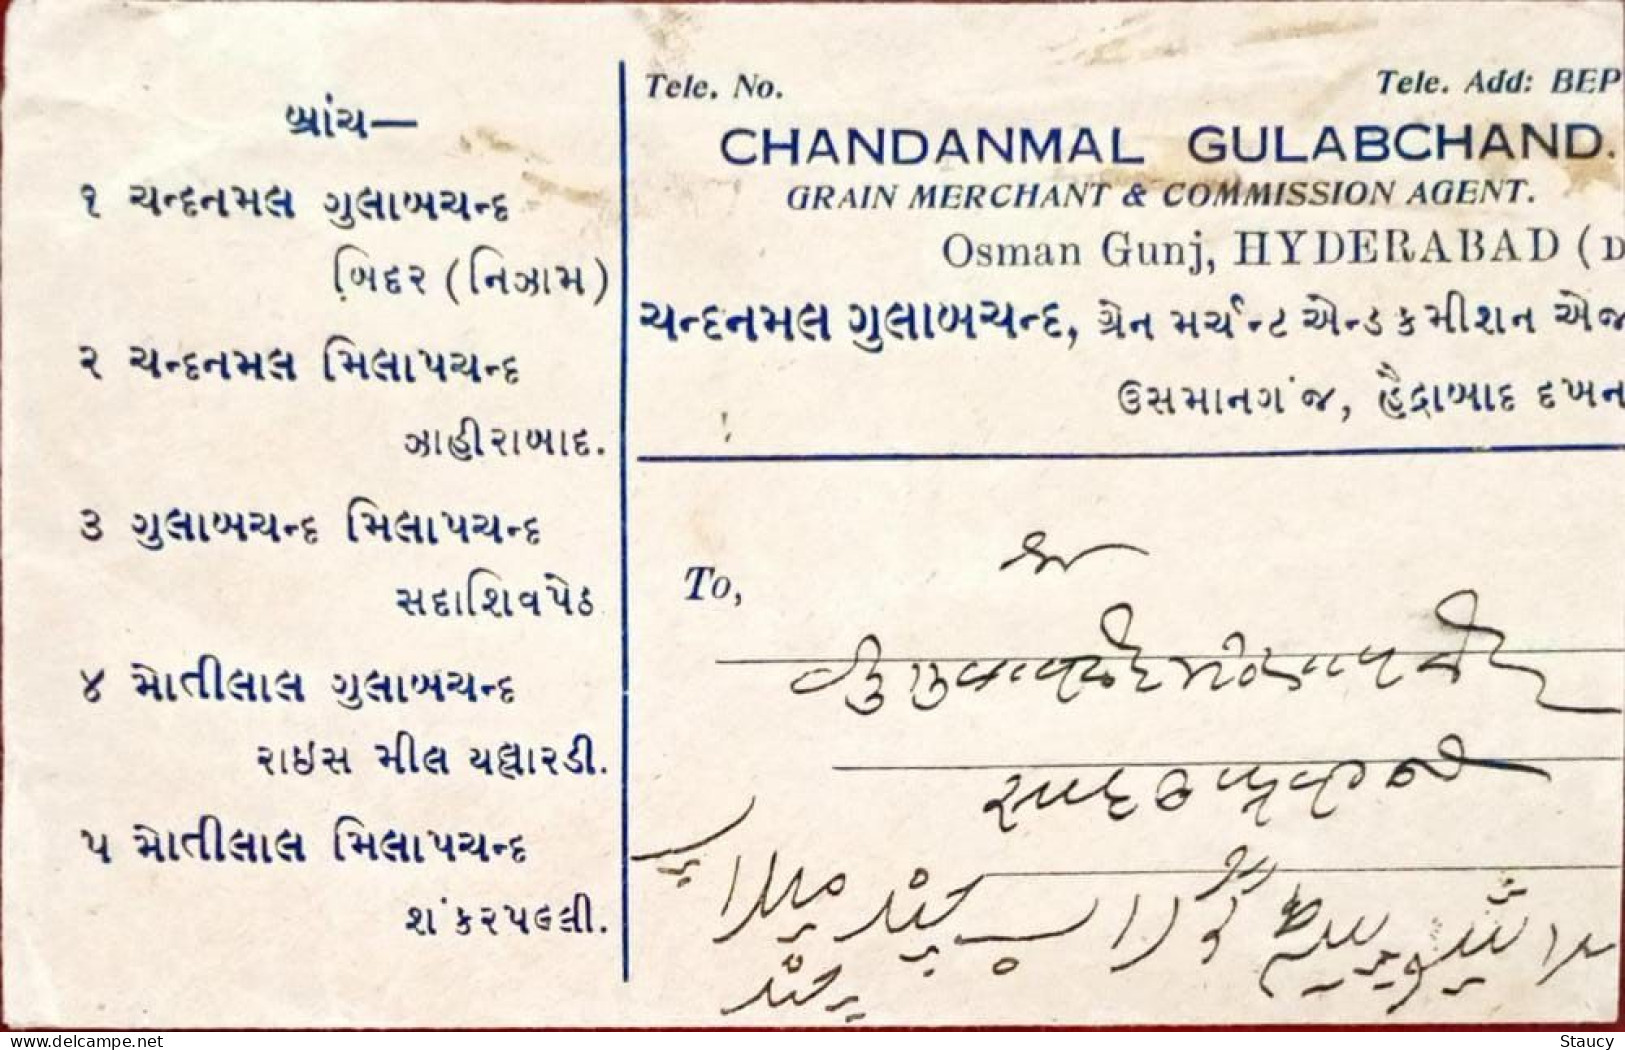 બ્રાંચ—
૧ ચન્દનમલ ગુલાબચન્દ
બિદર (નિઝામ)
૨ ચન્દનમલ મિલાપચન્દ
ઝાહીરાબાદ.
૩ ગુલાબચન્દ મિલાપચન્દ
સદાશિવપેઠ
૪ મોતીલાલ ગુલાબચન્દ
રાઇસ મીલ યલ્લારડી.
૫ મોતીલાલ મિલાપચન્દ
શંકરપલ્લી.
Tele. No. Tele. Add: BEP
CHANDANMAL GULABCHAND.
GRAIN MERCHANT & COMMISSION AGENT.
Osman Gunj, HYDERABAD (D
ચન્દનમલ ગુલાબચન્દ, ગ્રેન મર્ચન્ટ એન્ડ કમીશન એજ
ઉસમાનગંજ, હૈદ્રાબાદ દખન
To,
گلاب چند ميلاپ
چند
delcampe.net
Staucy